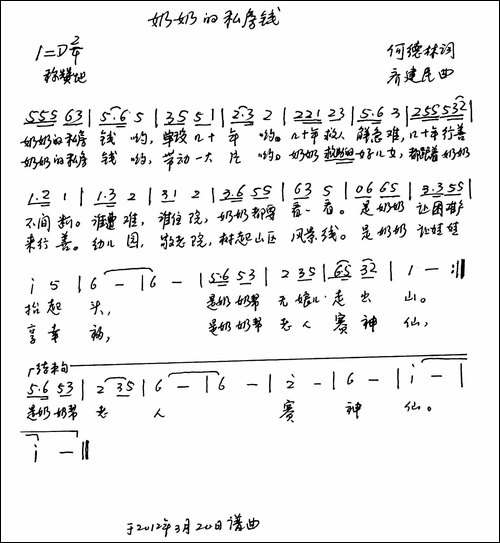 奶奶的私房钱
1=D 2/4
何德林词
称赞地
齐建民曲
555 63 | 5·6 5 | 35 51 | 2·3 2 | 221 23 | 5·6 3 | 2555 532 |
奶奶的私房 钱 哟, 几十 年 哟。几十年救人 解急难, 几十年行善
奶奶的私房 钱 哟, 带动一大 片 哟。奶奶 的好儿女, 都跟着 奶奶
1·2 1 | 1·3 2 | 31 2 | 3·6 55 | 63 5 | 06 65 | 3·3 55 |
不间断。谁遭难, 谁住院, 奶奶都要 看一看。是奶奶 让困难户
来行善。幼儿园, 敬老院, 树起山区 风景线。是奶奶 让娃娃
i 5 | 6 — | 6 — | 5·6 53 | 2 35 | 65 32 | 1 — :‖
抬起 头, 是奶奶帮 无娘儿 走出 山。
享幸 福, 是奶奶帮 老人 赛神 仙,
结束句
5·6 53 | 2 35 | 6 — | 6 — | 2 — | 6 — | i — |
是奶奶帮 老 人 赛 神 仙。
i — ‖
于2012年3月20日谱曲